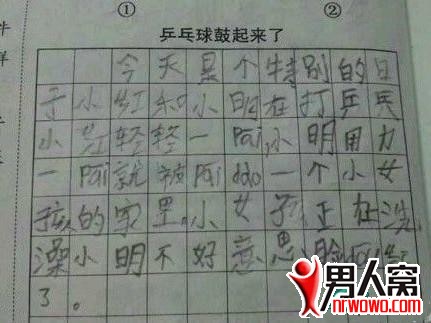 ① ②
乒乓球鼓起来了
今天是个特别的日
子小红和小明在打乒乓
小红轻轻一Pai,小明用力
一Pai就被Pai dao一个小女
孩的家里.小女孩正在洗
澡小明不好意思脸
了。
男人窝
nrwowo.com